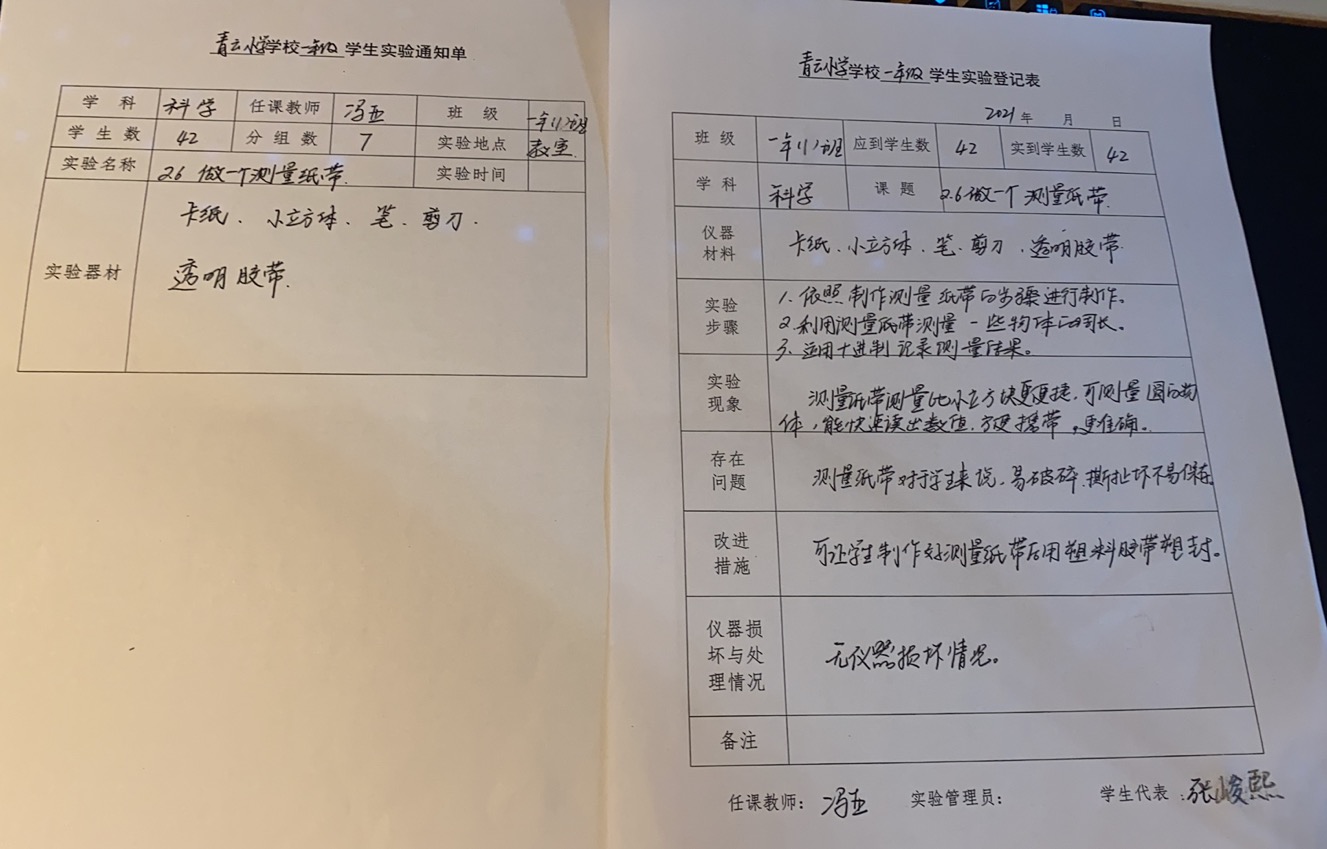 青云小学学校一年级 学生实验通知单
学 科 科学 任课教师 冯亚 班 级 一年(1)班
学 生 数 42 分 组 数 7 实验地点 教室
实验名称 2.6 做一个测量纸带 实验时间
实验器材 卡纸、小立方体、笔、剪刀、
透明胶带
青云小学学校一年级 学生实验登记表
2021 年 月 日
班 级 一年(1)班 应到学生数 42 实到学生数 42
学 科 科学 课 题 2.6做一个测量纸带
仪器材料 卡纸、小立方体、笔、剪刀、透明胶带
实验步骤 1、依照制作测量纸带的步骤进行制作。
2、利用测量纸带测量一些物体的周长。
3、运用十进制记录测量结果。
实验现象 测量纸带测量比小立方块更便捷,可测量圆的物
体,能快速读出数值,方便携带,更准确。
存在问题 测量纸带对于学生来说,易破碎、撕扯坏不易保存。
改进措施 可让学生制作好测量纸带后用塑料胶带塑封。
仪器损坏与处理情况 无仪器损坏情况。
备注
任课教师: 冯亚 实验管理员: 学生代表: 张峻熙